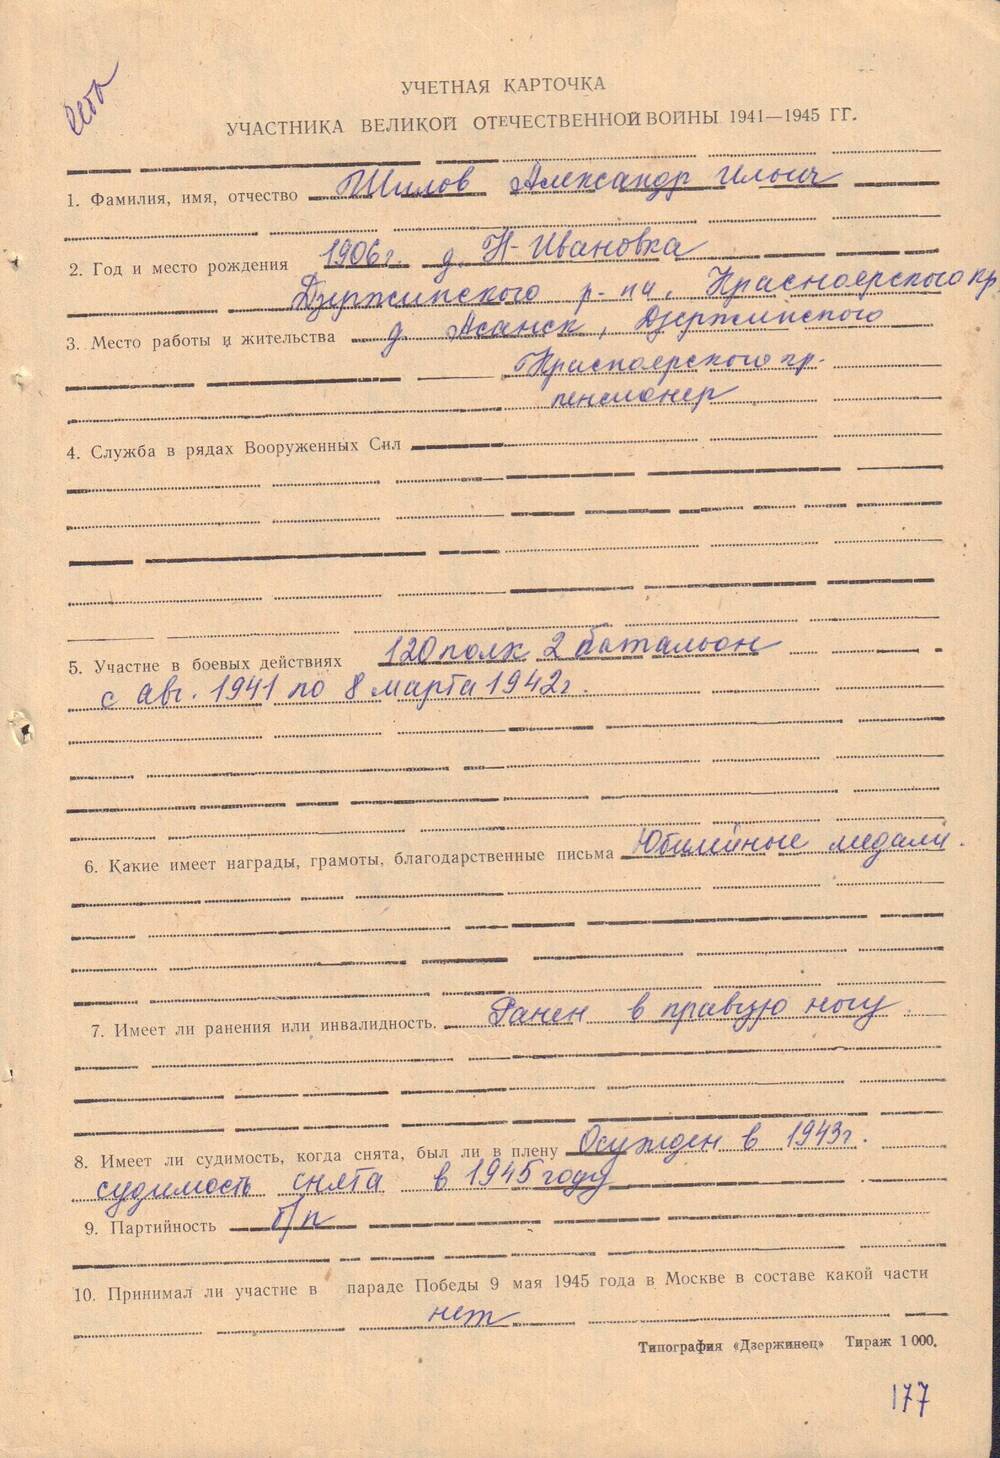 УЧЕТНАЯ КАРТОЧКА
УЧАСТНИКА ВЕЛИКОЙ ОТЕЧЕСТВЕННОЙ ВОЙНЫ 1941—1945 ГГ.
1. Фамилия, имя, отчество Шилов Александр Ильич
2. Год и место рождения 1906г. д. Н-Ивановка
Дзержинского р-на, Красноярского кр.
3. Место работы и жительства д. Асанск, Дзержинского
Красноярского кр.
пенсионер
4. Служба в рядах Вооруженных Сил
5. Участие в боевых действиях 120 полк 2 батальон
с авг. 1941 по 8 марта 1942г.
6. Какие имеет награды, грамоты, благодарственные письма Юбилейные медали.
7. Имеет ли ранения или инвалидность. Ранен в правую ногу.
8. Имеет ли судимость, когда снята, был ли в плену Осужден в 1943г.
судимость снята в 1945 году
9. Партийность б/п
10. Принимал ли участие в параде Победы 9 мая 1945 года в Москве в составе какой части
нет
Типография «Дзержинец» Тираж 1 000.
177